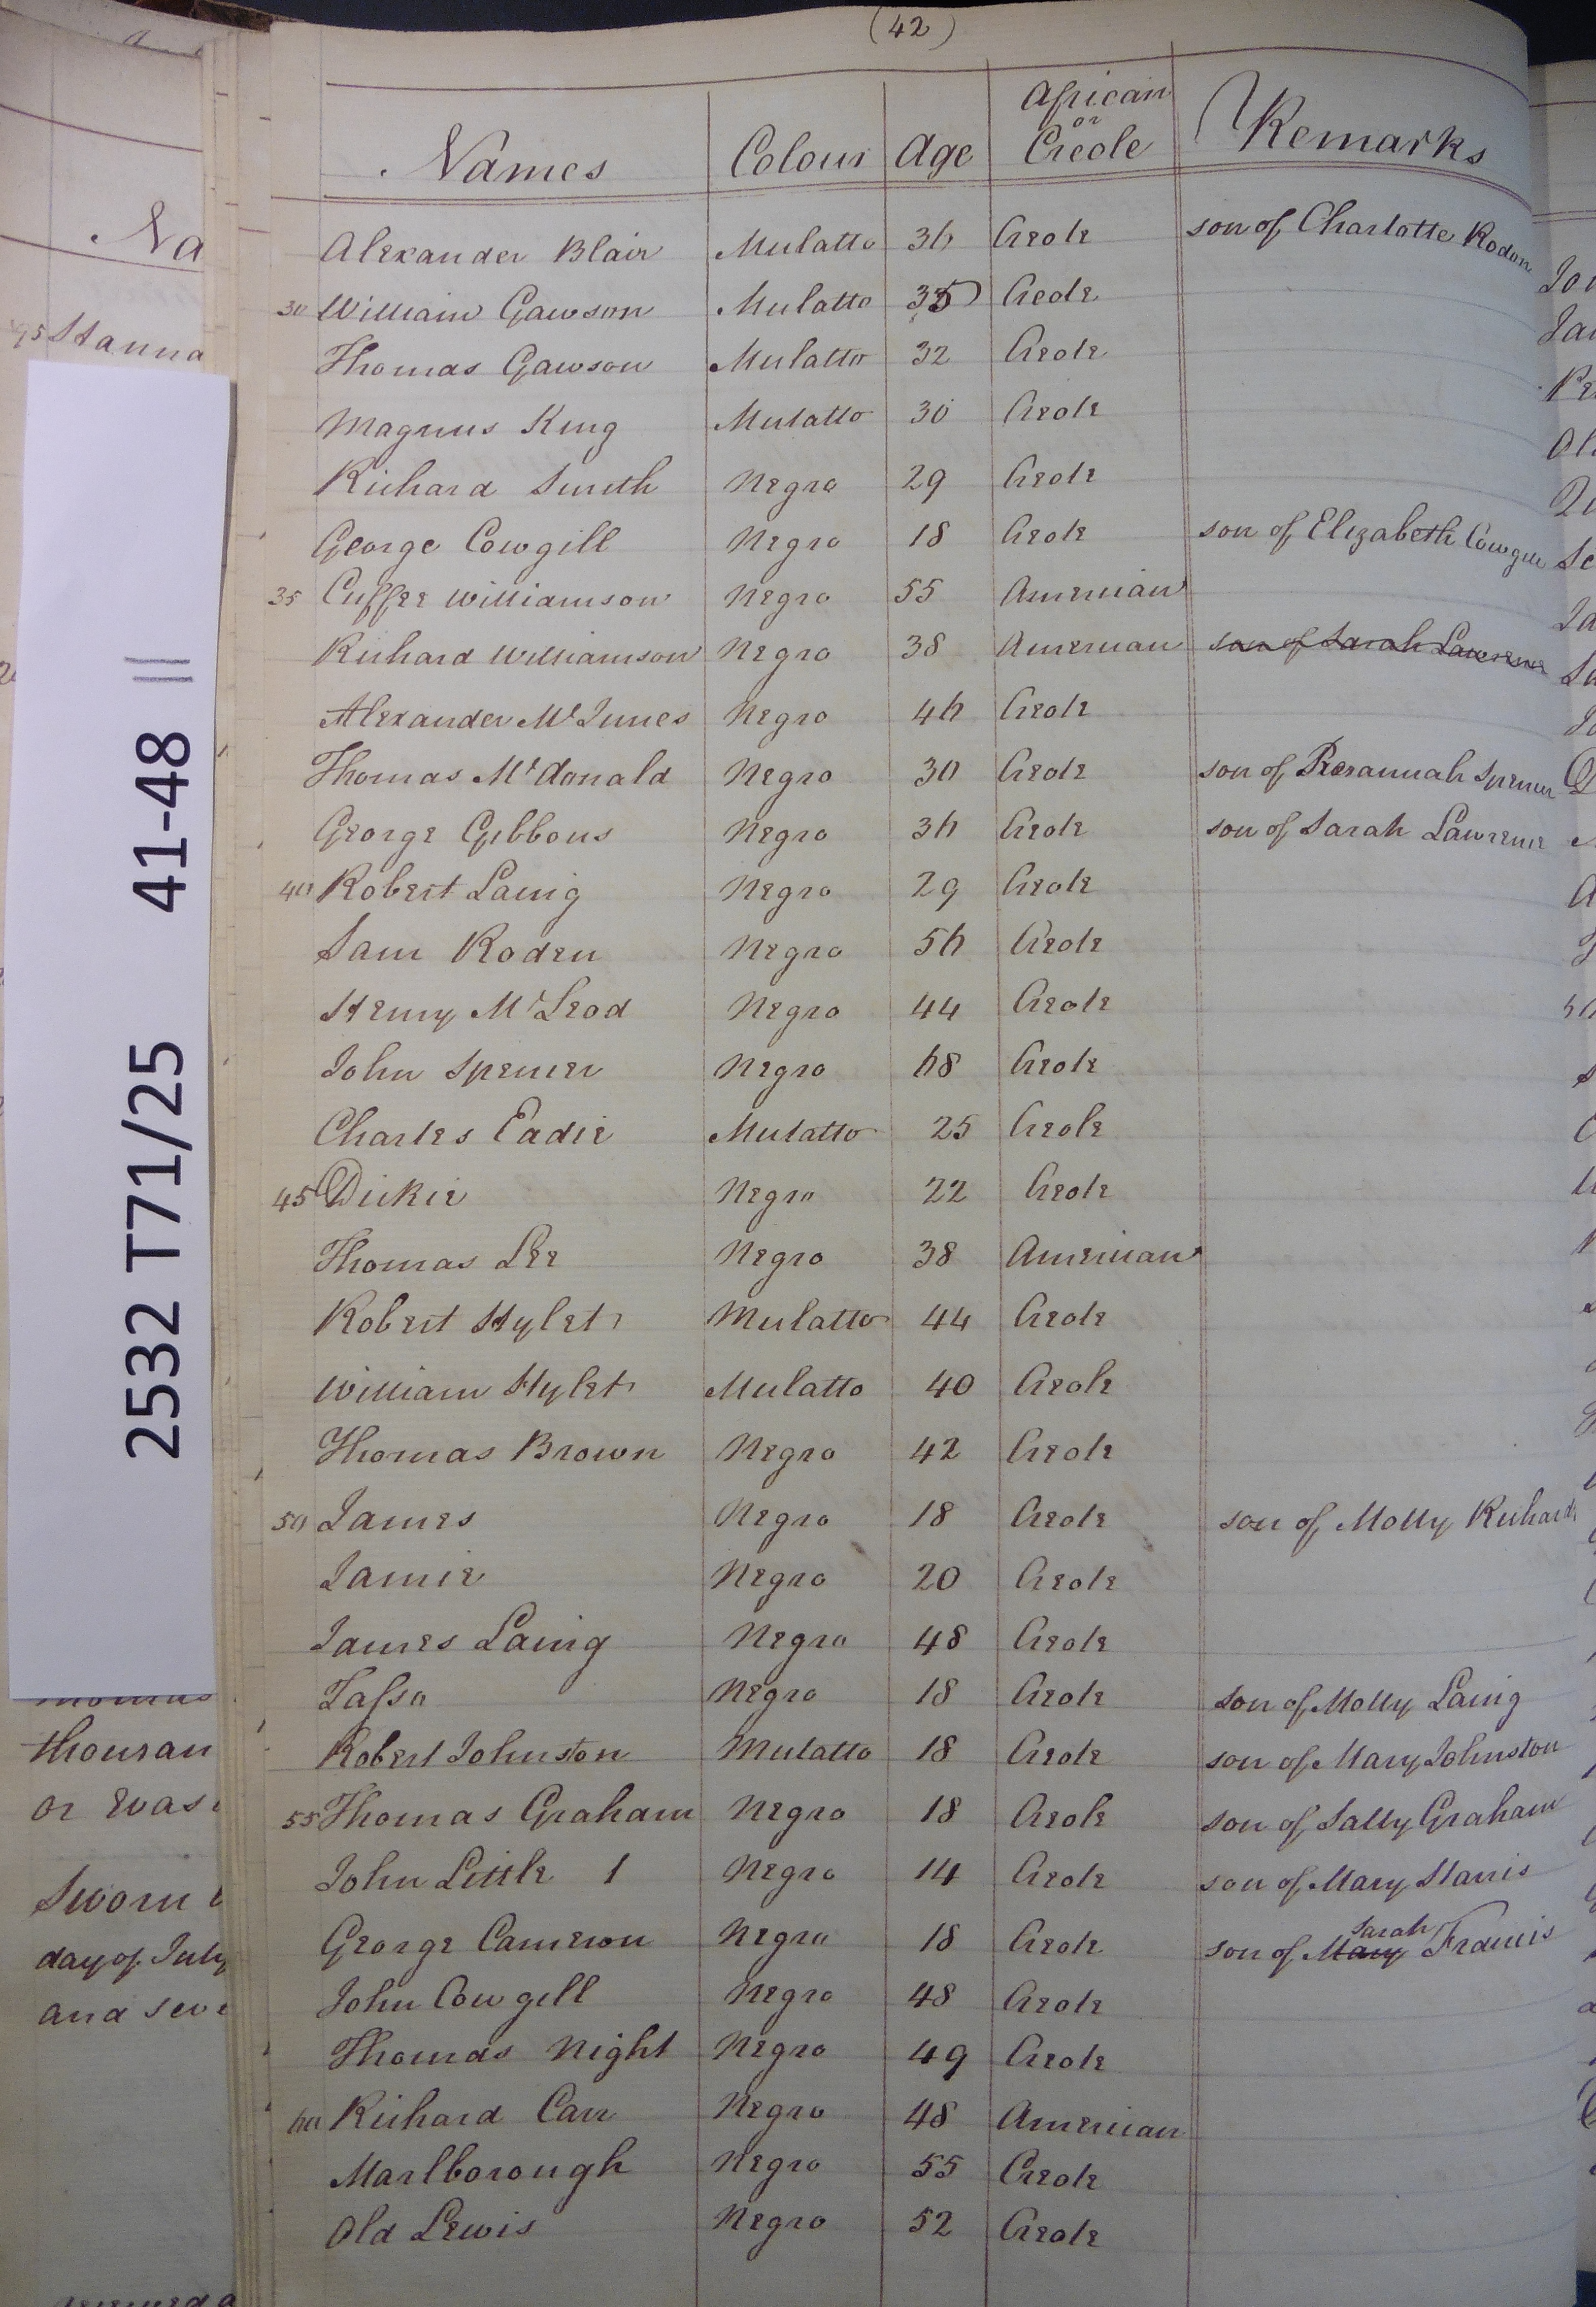 (42)
Names Colour Age African or Creole Remarks
Alexander Blair Mulatto 36 Creole son of Charlotte Rodon
30 William Gawson Mulatto 35 Creole
Thomas Gawson Mulatto 32 Creole
Magnus King Mulatto 30 Creole
Richard Smith Negro 29 Creole
George Cowgill Negro 18 Creole son of Elizabeth Cowgill
35 Cuffee Williamson Negro 55 American
Richard Williamson Negro 38 American son of Sarah Lawrence
Alexander McInnes Negro 46 Creole
Thomas McDonald Negro 30 Creole son of Rosannah Spencer
George Gibbons Negro 36 Creole son of Sarah Lawrence
40 Robert Laing Negro 29 Creole
Sam Roden Negro 56 Creole
Henry McLeod Negro 44 Creole
John Spencer Negro 68 Creole
Charles Eadie Mulatto 25 Creole
45 Dickie Negro 22 Creole
Thomas Lee Negro 38 American
Robert Hylet Mulatto 44 Creole
William Hylet Mulatto 40 Creole
Thomas Brown Negro 42 Creole
50 James Negro 18 Creole son of Molly Richards
Jamie Negro 20 Creole
James Laing Negro 48 Creole
Tasso Negro 18 Creole son of Molly Laing
Robert Johnston Mulatto 18 Creole son of Mary Johnston
55 Thomas Graham Negro 18 Creole son of Sally Graham
John Little 1 Negro 14 Creole son of Mary Harris
George Cameron Negro 18 Creole son of Mary Sarah Francis
John Cowgill Negro 48 Creole
Thomas Night Negro 49 Creole
60 Richard Carr Negro 48 American
Marlborough Negro 55 Creole
Old Lewis Negro 52 Creole
2532 T71/25 41-48 ||
Na
95 Hanna
thousan
or evas
Sworn
day of July
and seve